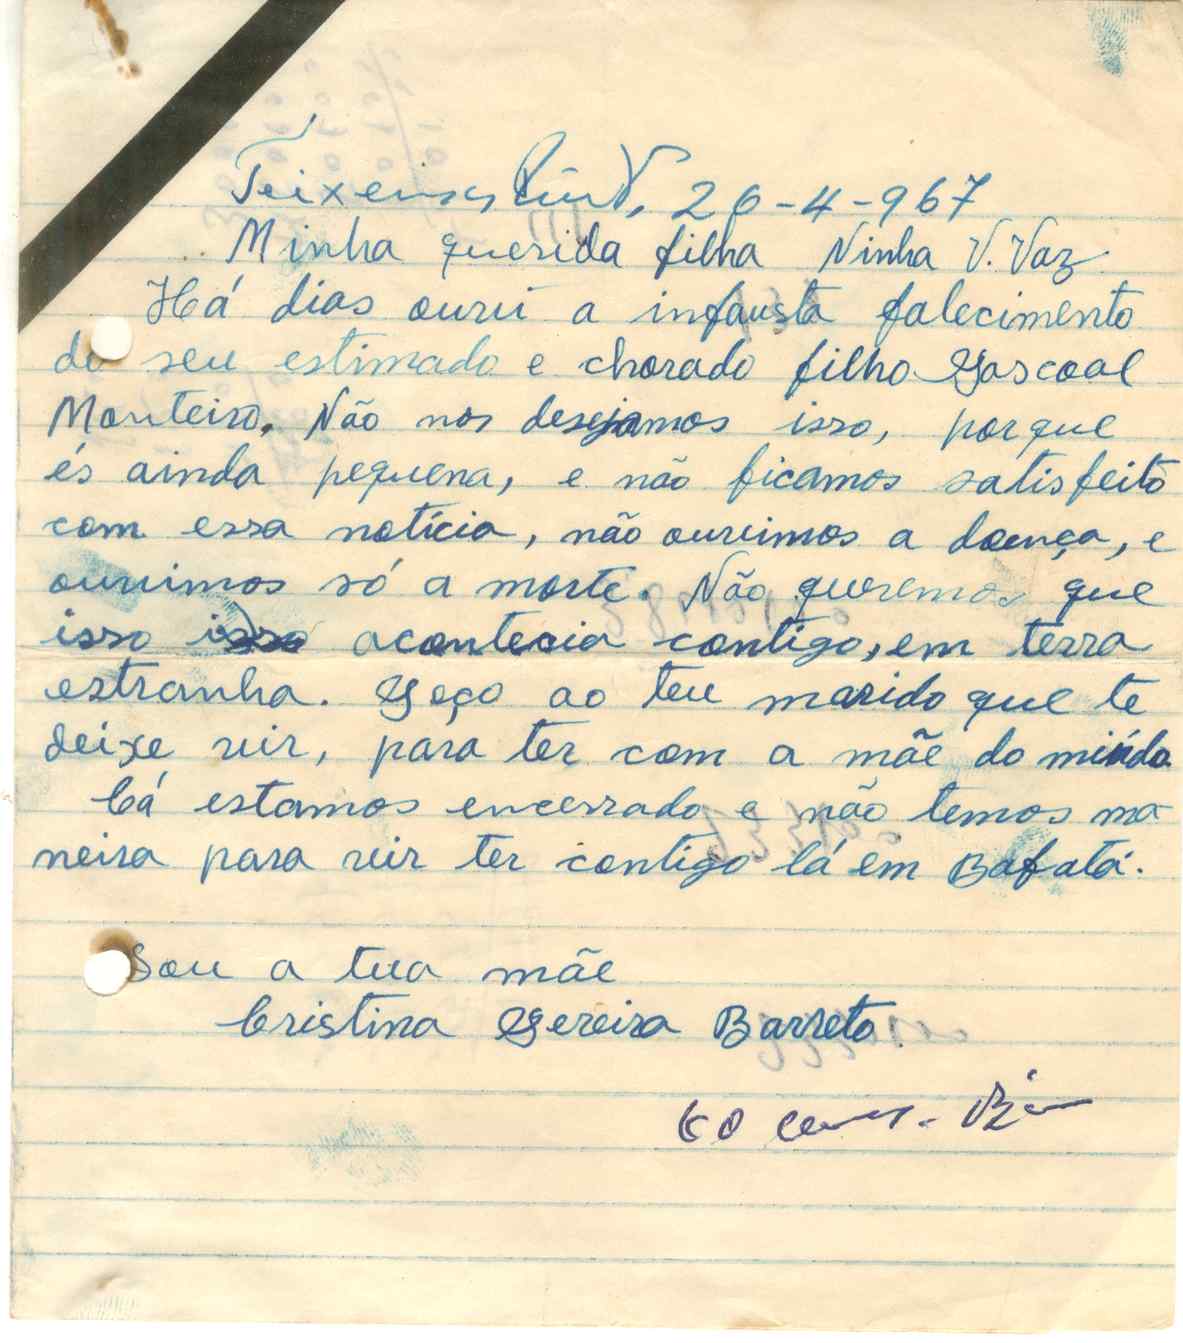 Teixeira Pinto, 26-4-967
Minha querida filha Ninha V. Vaz
Há dias ouvi a infausta falecimento
do seu estimado e chorado filho Pascoal
Monteiro. Não nos desejamos isso, porque
és ainda pequena, e não ficamos satisfeito
com essa notícia, não ouvimos a doença, e
ouvimos só a morte. Não queremos que
isso isso acontecia contigo, em terra
estranha. Peço ao teu marido que te
deixe vir, para ter com a mãe do miúdo
Cá estamos encerrado e não temos ma
neira para vir ter contigo lá em Bafatá.
Sou a tua mãe
Cristina Pereira Barreto